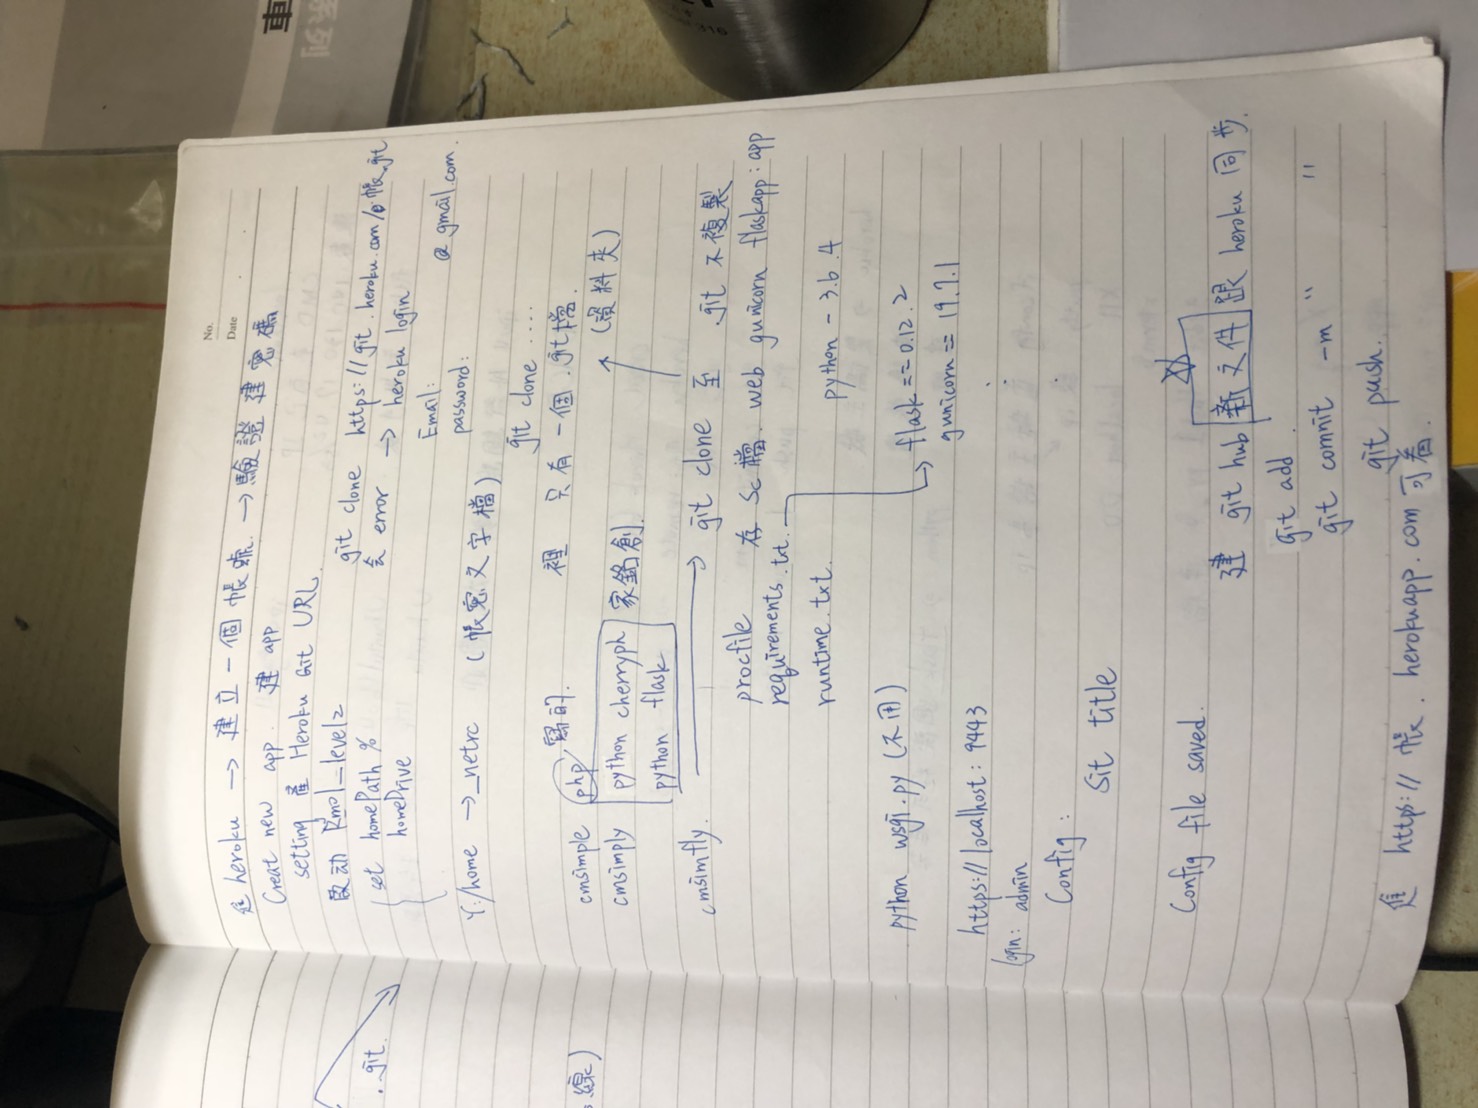 No.
Date
heroku → 建立一個帳號. → 驗證 建密碼
Creat new app. 建 app
setting 產 Heroku Git URL
啟動
git clone https://git.heroku.com/帳.git
{ set homePath %
會 error → heroku login
homeDrive
Email: @gmail.com.
password:
Y:/home → _netrc (帳密文字檔)
git clone .....
裡 只有一個 .git檔.
cmsimple php 寫的.
cmsimply python cherryph 家銘創
(資料夾)
python flask
cmsimfly. → git clone 至 .git 不複製
procfile 在 Sc檔. web gunicorn flaskapp:app
requirements.txt. → flask==0.12.2
gunicorn==19.7.1
runtime.txt. python-3.6.4
python wsgi.py (不用)
https://localhost:9443
login: admin
Config:
Sit title
Config file saved.
建 git hub 新文件 跟 heroku 同步.
git add.
git commit -m " "
git push.
https://帳.herokuapp.com 可看.
.git.
線)
系列
車
316